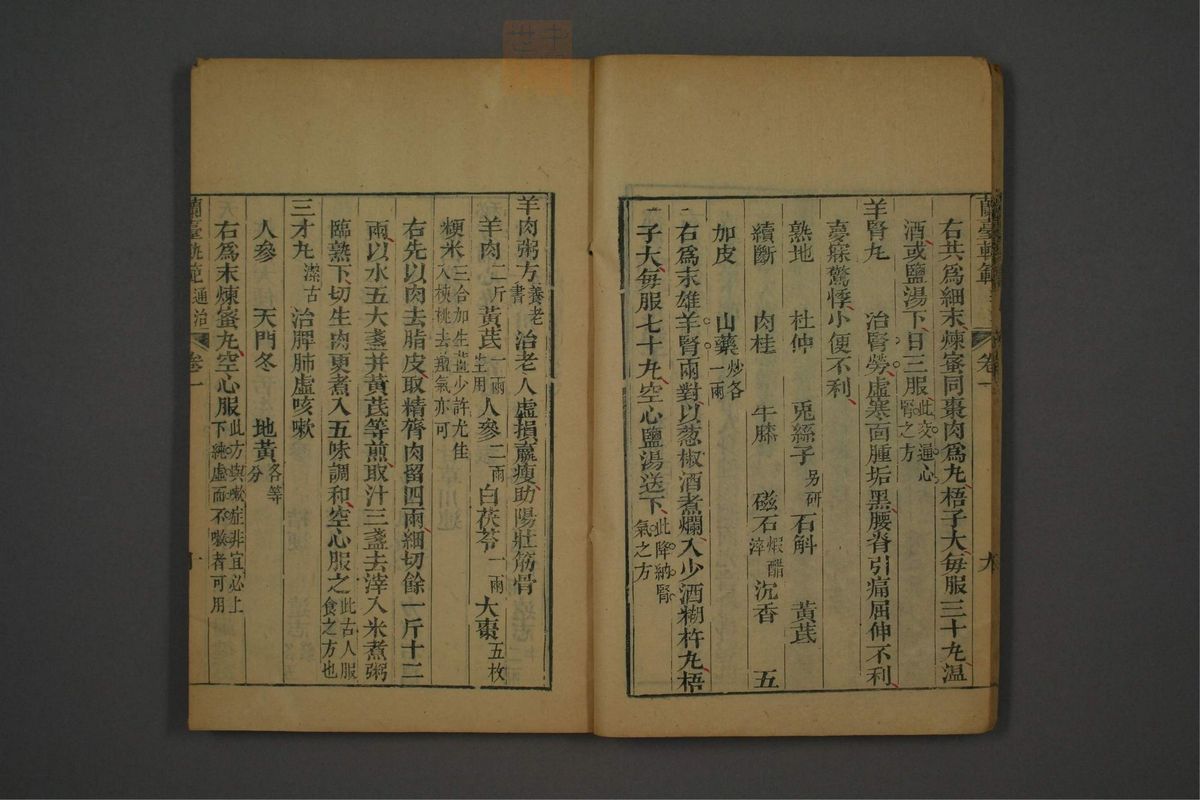 蘭臺軌範 卷一 九
右共爲細末煉蜜同棗肉爲丸梧子大每服三十丸温
酒或鹽湯下日三服此交通心腎之方
羊腎丸 治腎勞虛寒面腫垢黑腰脊引痛屈伸不利
夢寐驚悸小便不利
熟地 杜仲 兎絲子另研 石斛 黃芪
續斷 肉桂 牛膝 磁石煆醋淬 沉香 五
加皮 山藥炒各一兩
右爲末雄羊腎兩對以葱椒酒煮爛入少酒糊杵丸梧
子大每服七十丸空心鹽湯送下此降納腎氣之方
羊肉粥方養老書 治老人虛損羸瘦助陽壯筋骨
羊肉二斤 黃芪一兩生用 人參二兩 白茯苓一兩 大棗五枚
粳米三合加生薑少許尤佳入核桃去羶氣亦可
右先以肉去脂皮取精膂肉留四兩細切餘一斤十二
兩以水五大盞并黃芪等煎取汁三盞去滓入米煮粥
臨熟下切生肉更煮入五味調和空心服之此古人服食之方也
三才丸潔古 治脾肺虛咳嗽
人參 天門冬 地黃各等分
右爲末煉蜜丸空心服此方與嗽症非宜必上下純虛而不嗽者可用
蘭臺軌範 通治 卷一 十